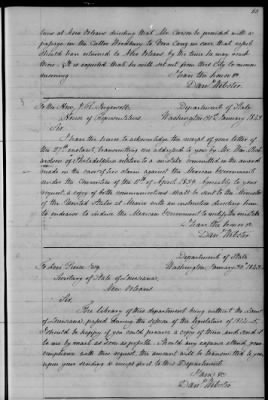 tains at New Orleans directing that Mr. Carson be provided with a
passage on the Cutter Woodbury to Vera Cruz in case that vessel
should have returned to New Orleans by the time he may reach
there. It is expected that he will set out from this City to-morrow
morning.
I have the honor &c
Danl. Webster.
To the Hon. J. R. Ingersoll
House of Representatives
Department of State
Washington 30th January 1843
Sir.
I have the honor to acknowledge the receipt of your letter of
the 27th instant, transmitting one addressed to you by Mr. Wm. Rich-
ardson of Philadelphia relative to a mistake committed in the award
made in the case of his claim against the Mexican Government
under the Convention of the 11th of April 1839. Agreeably to your
request, a copy of both communications will be sent to the Minister
of the United States at Mexico with an instruction directing him
to endeavor to induce the Mexican Government to rectify the mistake.
I have the honor &c
Danl. Webster
Department of State
Washington January 30th 1843
To Levi Pierce Esq
Secretary of State of Louisiana,
New Orleans
Sir,
The library of this department being without the Laws
of Louisiana, passed during the session of the legislature of
I should be happy if you could procure a copy of them and send it
to me by mail as soon as possible. Should any expense attend your
compliance with this request, the amount will be transmitted to you
upon your sending a receipt for it to this Department.
I am &c
Danl. Webster